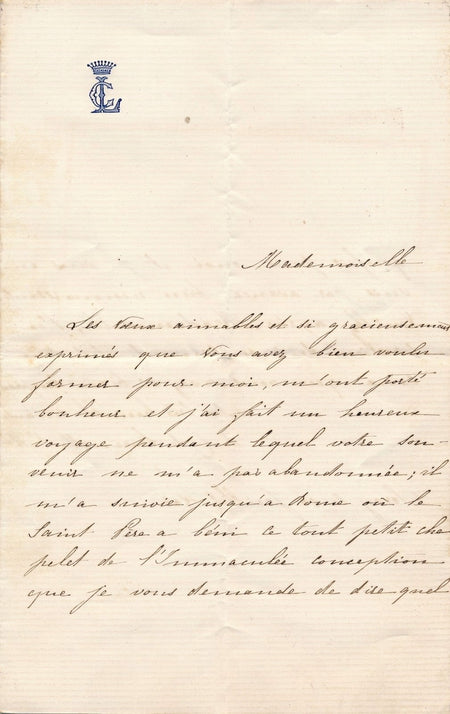 CL
Mademoiselle
Les vœux aimables et si gracieusement
exprimés que vous avez bien voulu
former pour moi, m'ont porté
bonheur et j'ai fait un heureux
voyage pendant lequel votre sou-
venir ne m'a pas abandonnée ; il
m'a suivie jusqu'à Rome où le
Saint Père a béni ce tout petit cha
pelet de l'Immaculée conception
que je vous demande de dire quel